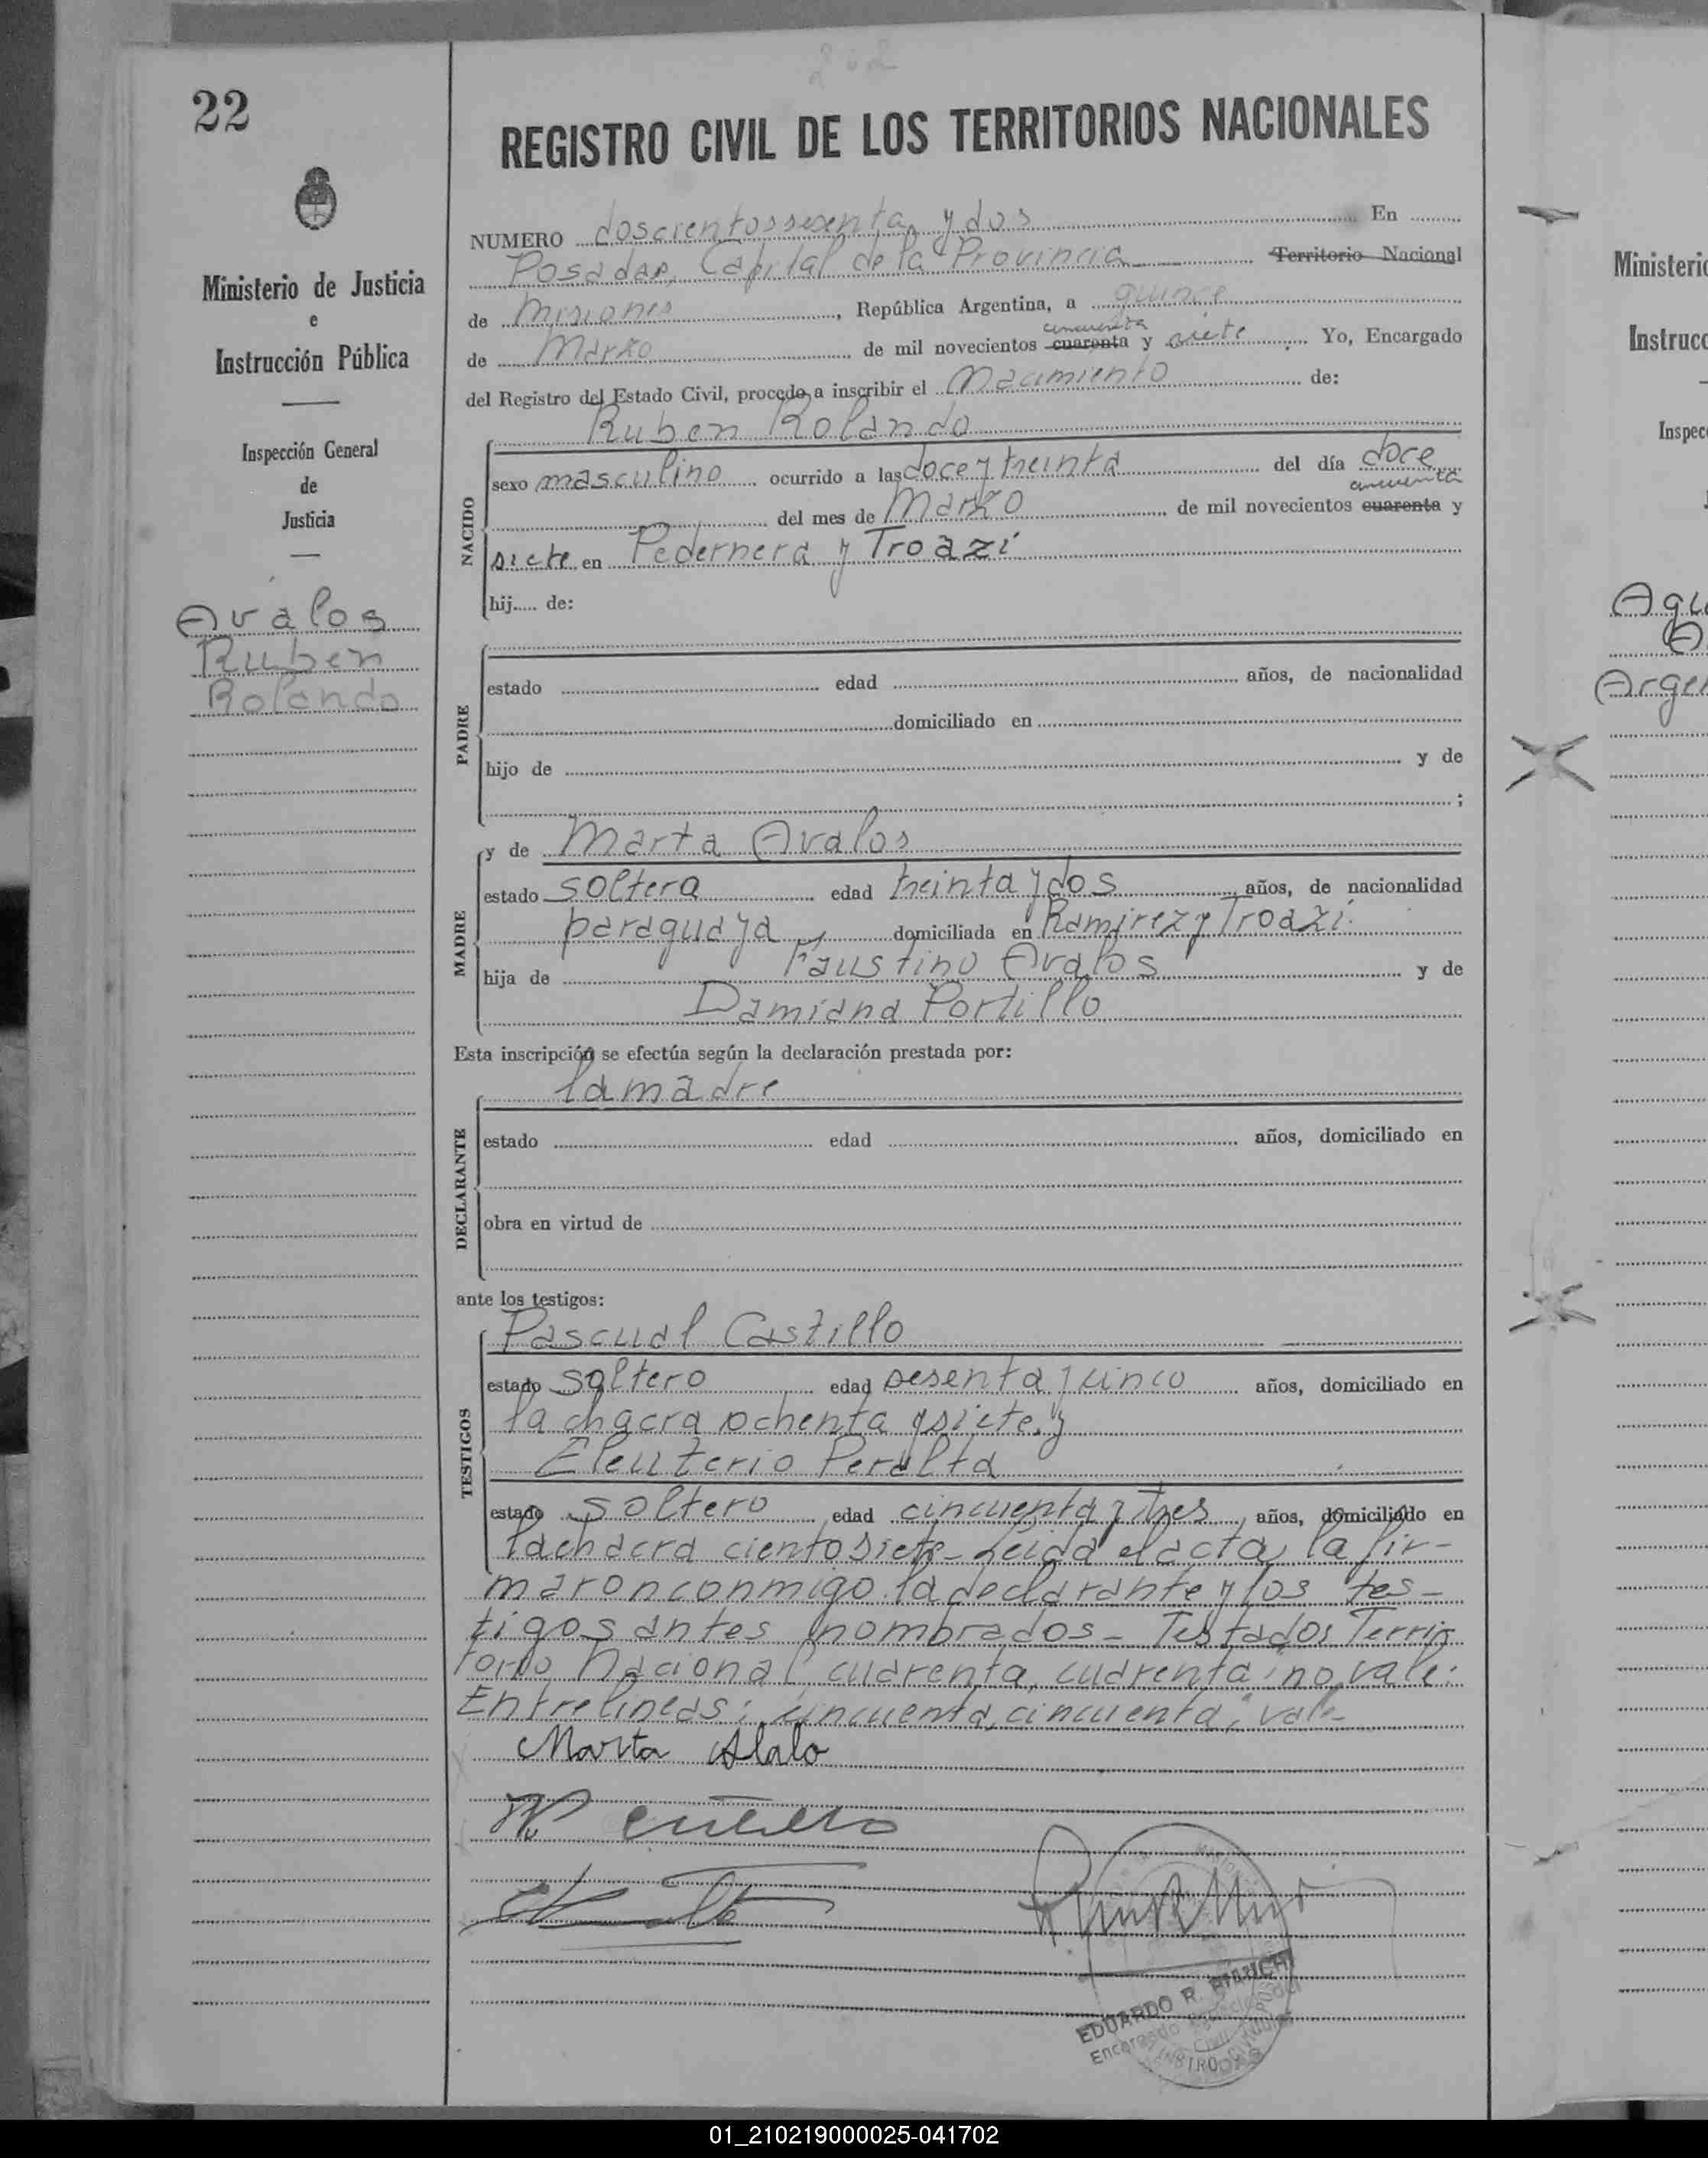 202
22
REGISTRO CIVIL DE LOS TERRITORIOS NACIONALES
NUMERO doscientossesenta y dos En
Posadas, Capital de la Provincia Territorio Nacional
de Misiones, República Argentina, a quince
cincuenta
de Marzo de mil novecientos cuarenta y siete. Yo, Encargado
del Registro del Estado Civil, procedo a inscribir el Nacimiento de:
Ruben Rolando
NACIDO
sexo masculino ocurrido a las doce y treinta del día doce
cincuenta
del mes de Marzo de mil novecientos cuarenta y
siete en Pedernera y Troazi
hij..... de:
PADRE
estado edad años, de nacionalidad
domiciliado en
hijo de y de
;
MADRE
y de Marta Avalos
estado soltera edad treinta y dos años, de nacionalidad
paraguaya domiciliada en Ramirez y Troazi.
hija de Faustino Avalos y de
Damiana Portillo
Esta inscripción se efectúa según la declaración prestada por:
la madre
DECLARANTE
estado edad años, domiciliado en
obra en virtud de
ante los testigos:
TESTIGOS
Pascual Castillo
estado soltero edad sesenta y cinco años, domiciliado en
la chacra ochenta y siete. y
Eleuterio Peralta
estado soltero edad cincuenta y tres, años, domiciliado en
la chacra ciento siete- Leida el acta, la fir-
maron conmigo la declarante y los tes-
tigos antes nombrados- Testados Territo
torio Nacional, cuarenta, cuarenta: no vale.
Entrelineas: cincuenta, cincuenta: vale
Marta Alalo
EDUARDO R. BIANCHI
Encargado
Ministerio de Justicia
e
Instrucción Pública
Inspección General
de
Justicia
Avalos
Ruben
Rolando
Ministerio
Instrucc
Inspec
Agu
Argen
01_210219000025-041702